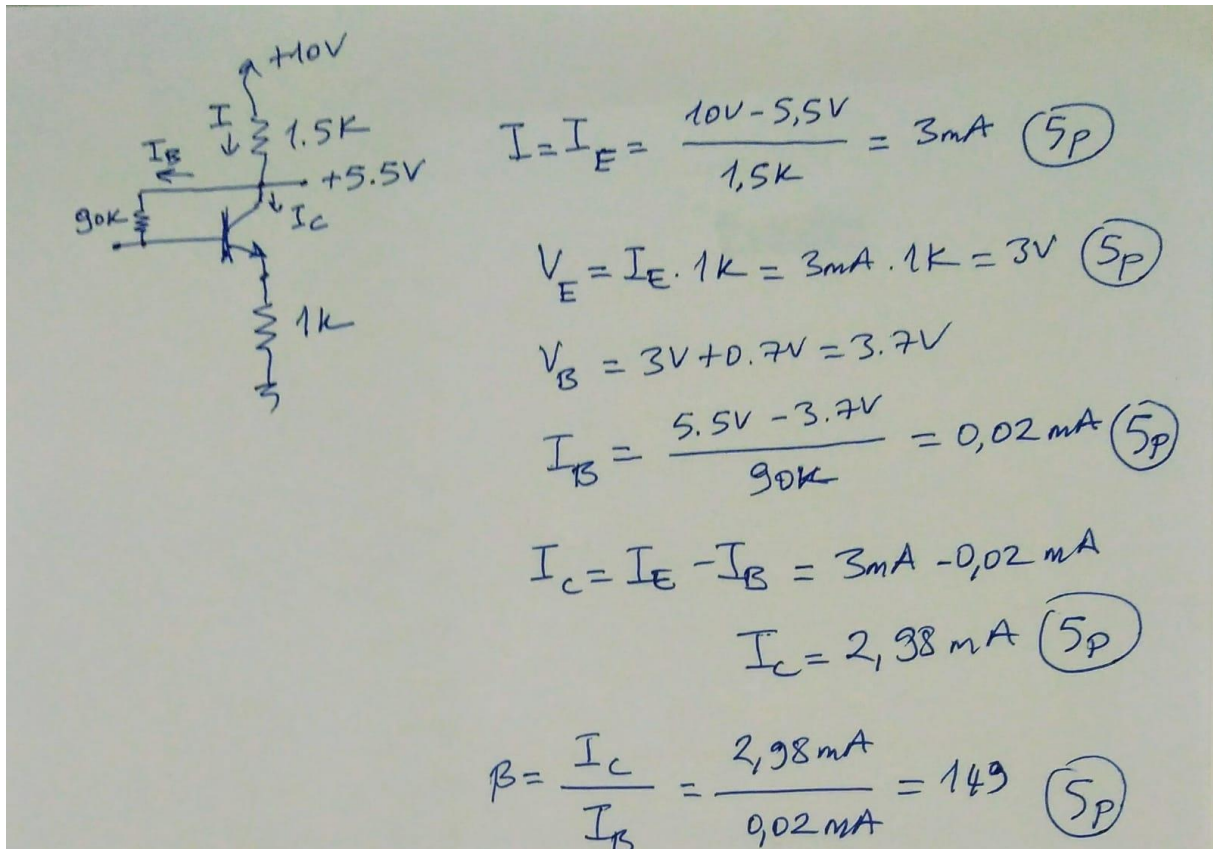 +10V
I
1.5K
I_B
+5.5V
90K
I_C
1K
I = I_E = (10V - 5,5V) / 1,5K = 3mA 5p
V_E = I_E . 1K = 3mA . 1K = 3V 5p
V_B = 3V + 0.7V = 3.7V
I_B = (5.5V - 3.7V) / 90K = 0,02 mA 5p
I_C = I_E - I_B = 3mA - 0,02 mA
I_C = 2,98 mA 5p
β = I_C / I_B = 2,98 mA / 0,02 mA = 149 5p